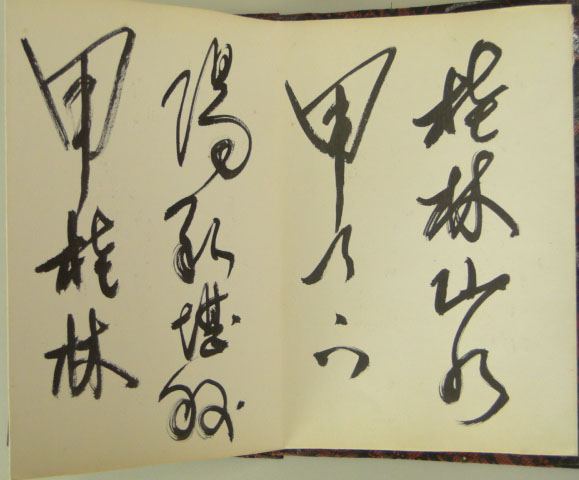 桂林山水
甲天下
陽朔堪稱
甲桂林